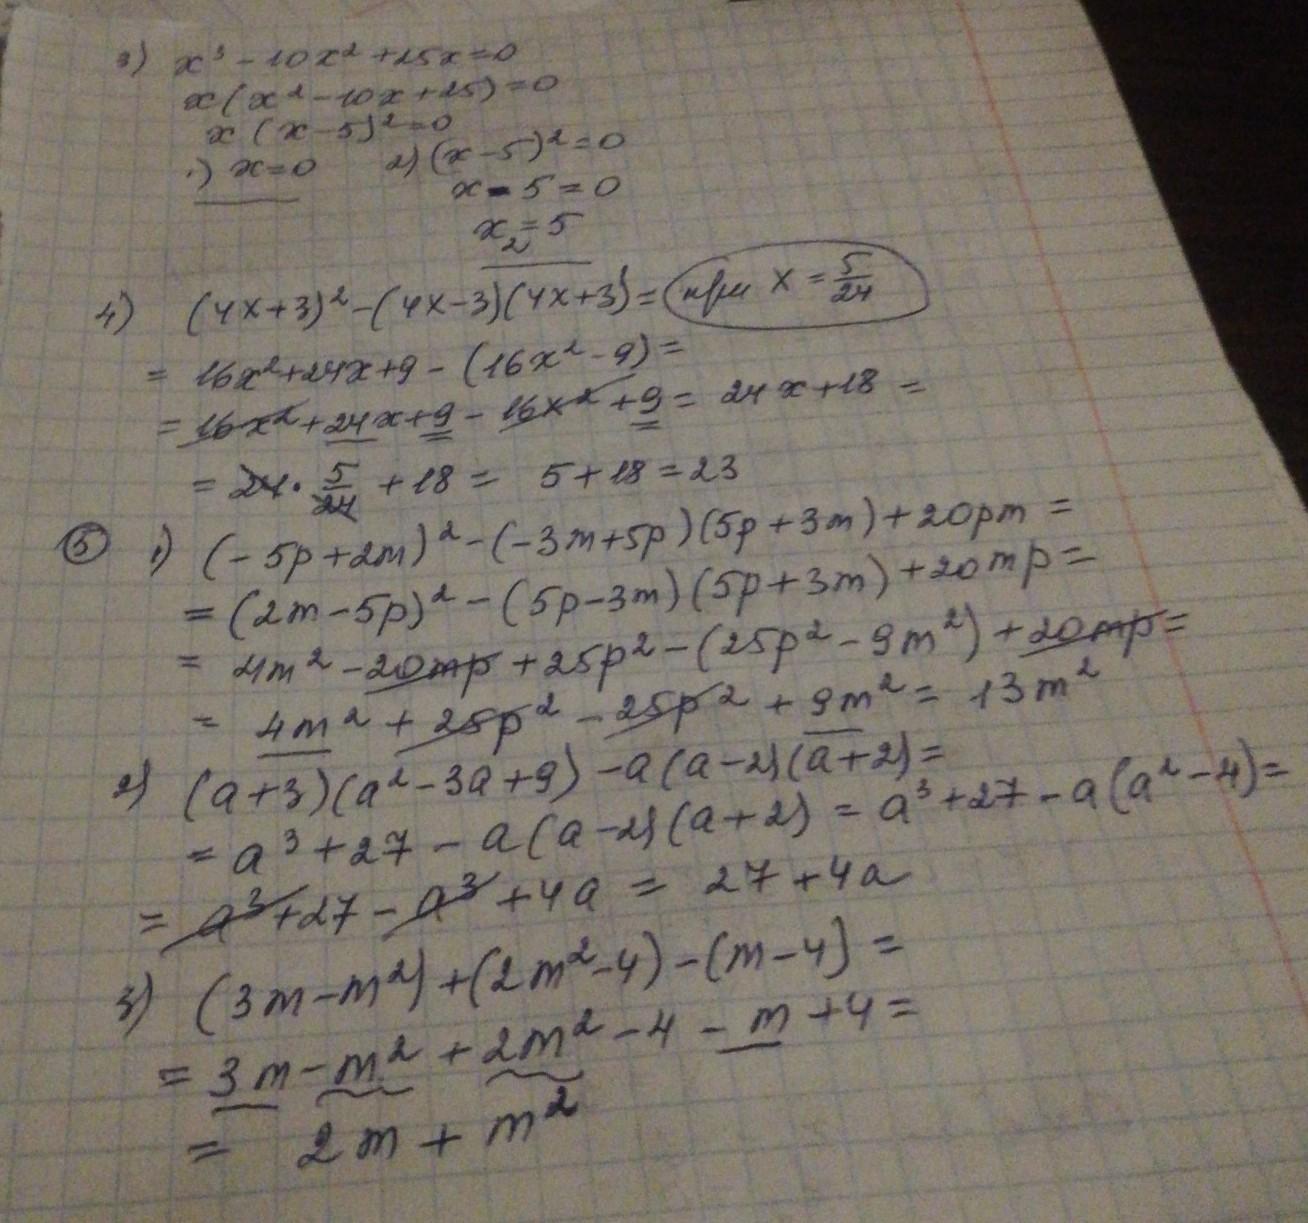 3) x³ - 10x² + 25x = 0
x(x² - 10x + 25) = 0
x(x - 5)² = 0
1) x = 0 2) (x - 5)² = 0
x - 5 = 0
x₂ = 5
4) (4x+3)² - (4x-3)(4x+3) = при x = 5/24
= 16x² + 24x + 9 - (16x² - 9) =
= 16x² + 24x + 9 - 16x² + 9 = 24x + 18 =
= 24 · 5/24 + 18 = 5 + 18 = 23
5 1) (-5p + 2m)² - (-3m + 5p)(5p + 3m) + 20pm =
= (2m - 5p)² - (5p - 3m)(5p + 3m) + 20mp =
= 4m² - 20mp + 25p² - (25p² - 9m²) + 20mp =
= 4m² + 25p² - 25p² + 9m² = 13m²
2) (a+3)(a² - 3a + 9) - a(a-2)(a+2) =
= a³ + 27 - a(a-2)(a+2) = a³ + 27 - a(a² - 4) =
= a³ + 27 - a³ + 4a = 27 + 4a
3) (3m - m²) + (2m² - 4) - (m - 4) =
= 3m - m² + 2m² - 4 - m + 4 =
= 2m + m²